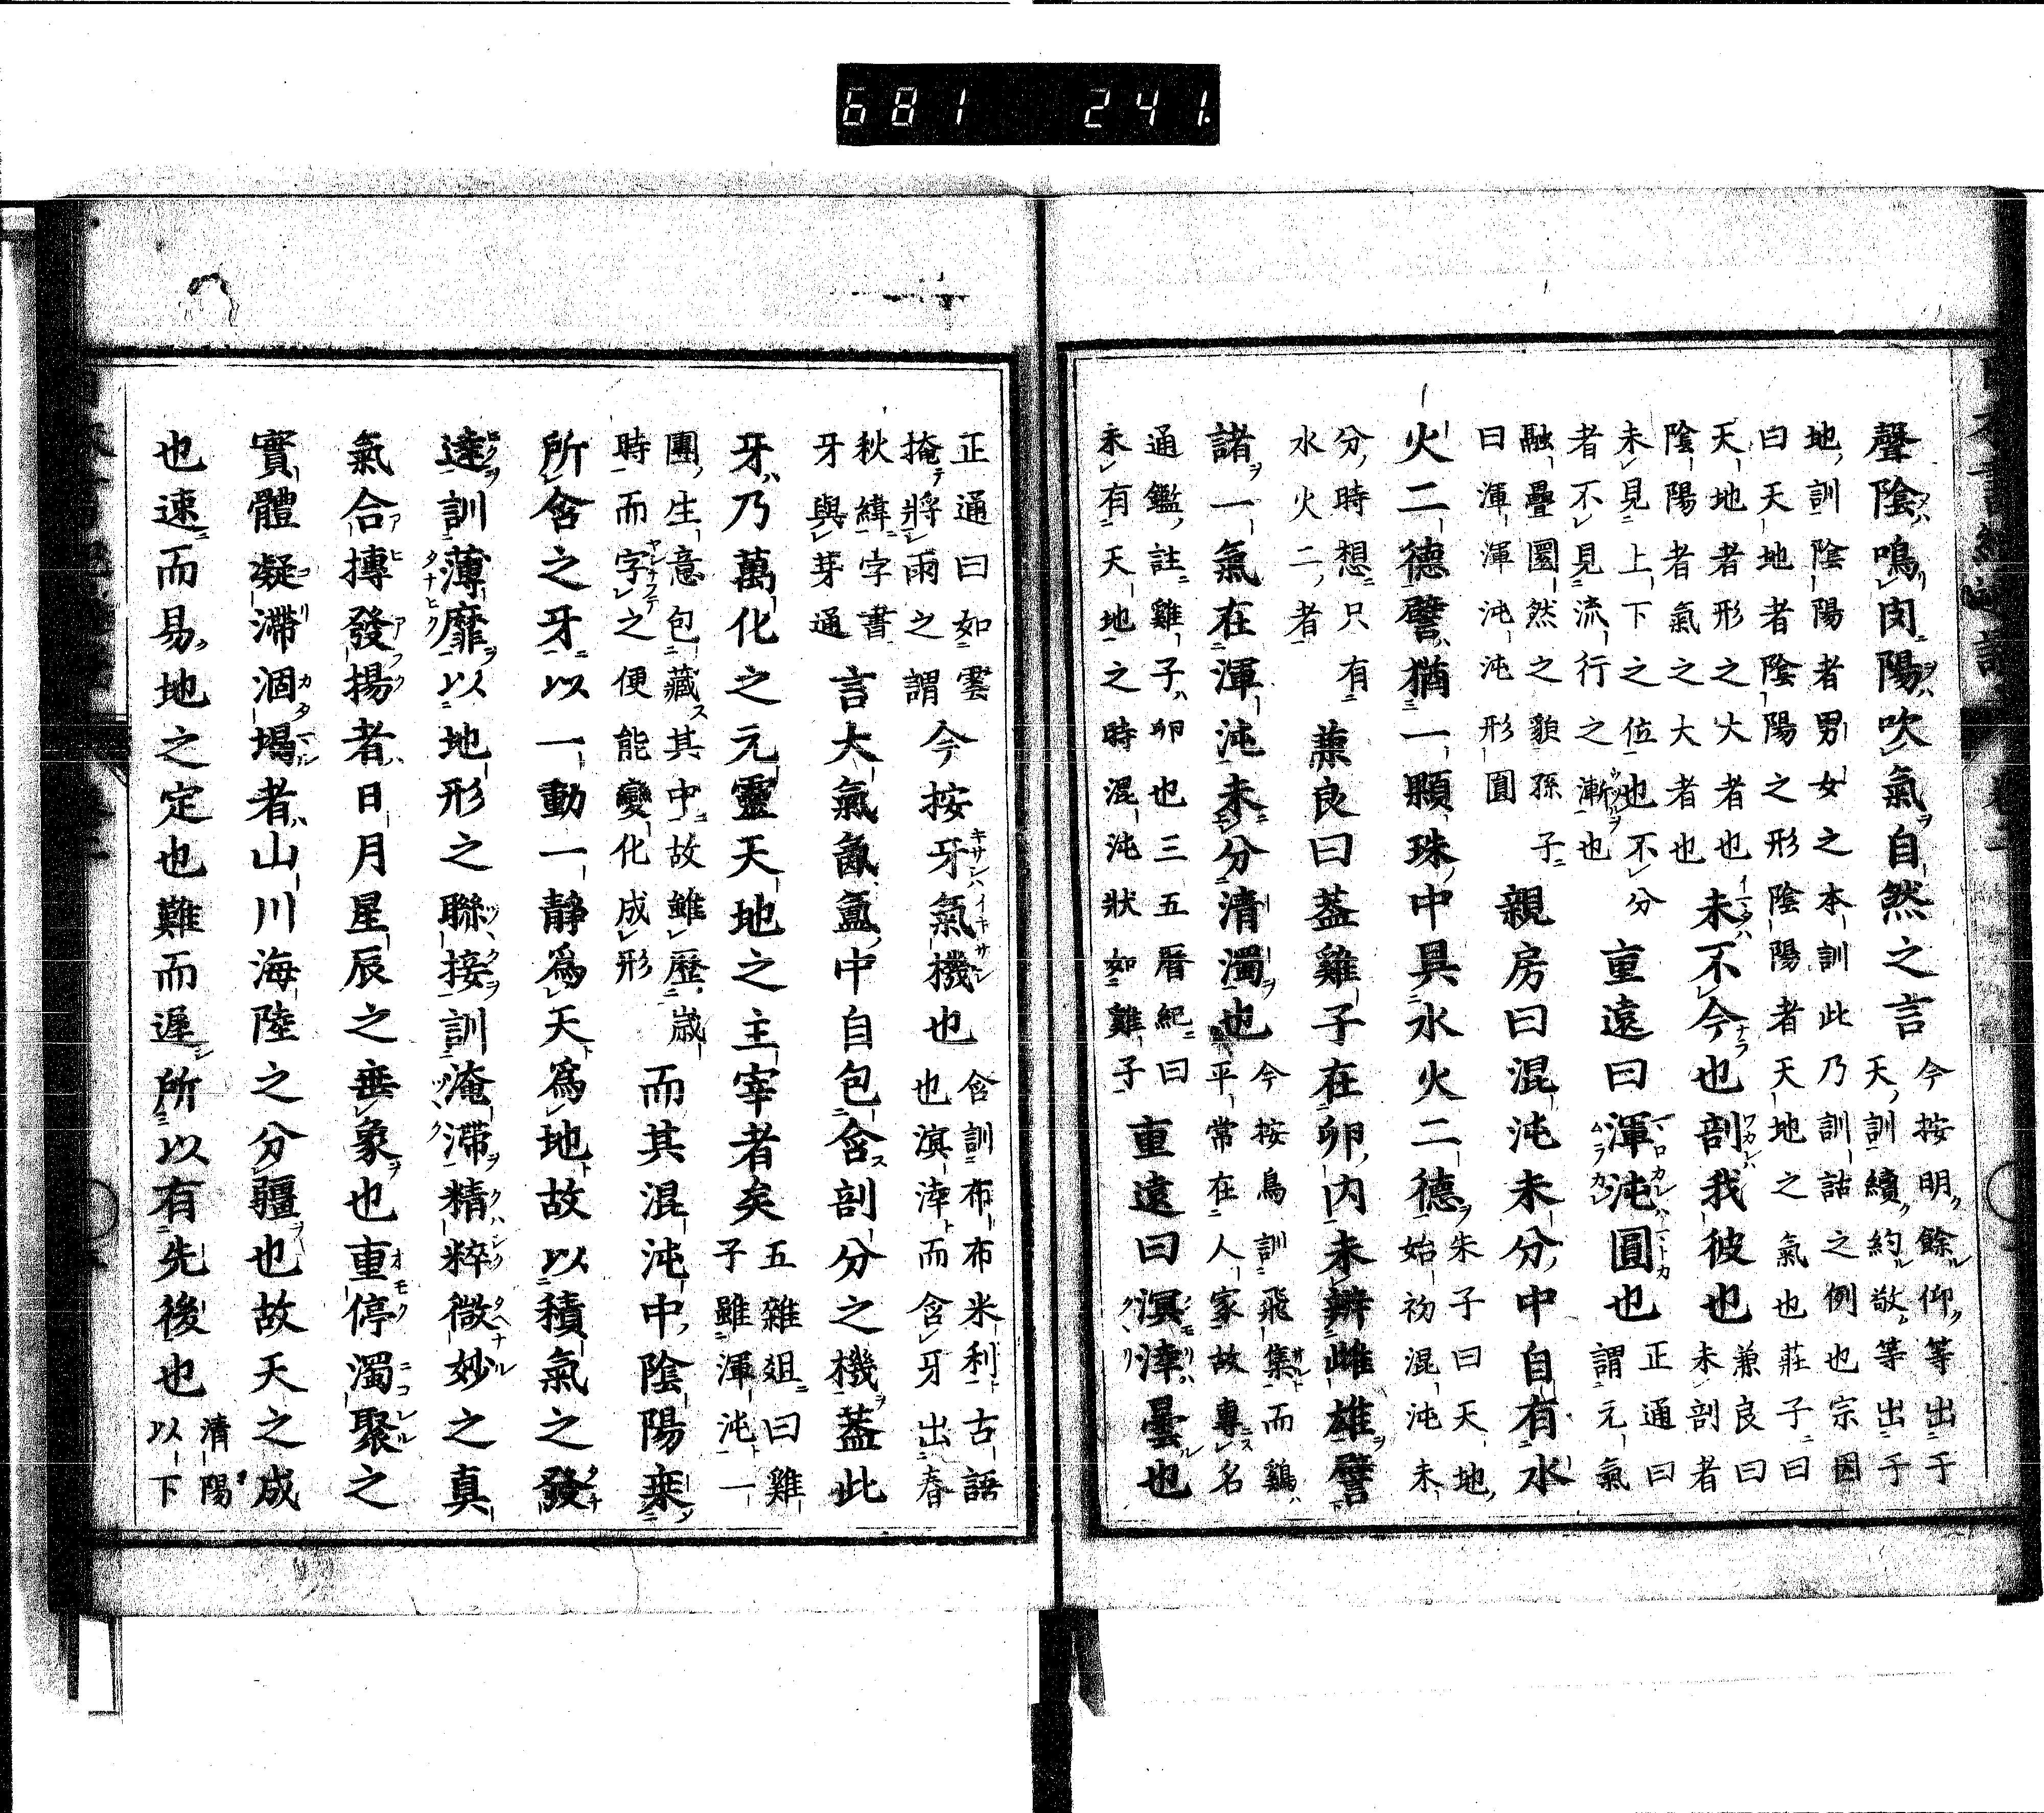 681 241.
聲陰鳴肉陽吹氣自然之言
今按明餘仰等出于
天訓續約敬等出于
地訓陰陽者男女之本訓此乃訓詁之例也宗因
曰天地者陰陽之形陰陽者天地之氣也莊子曰
天地者形之大者也
陰陽者氣之大者也
未不今也剖我彼也
兼良曰
未剖者
未見上下之位也不分
者不見流行之漸也
重遠曰渾沌圓也
正通曰
謂元氣
融疊圏然之貌孫子
曰渾渾沌沌形圓
親房曰混沌未分中自有水
火二德譬猶一顆珠中具水火二德
朱子曰天地
始初混沌未
分時想只有
水火二者
兼良曰蓋雞子在卵内未辨雌雄譬
諸一氣在渾沌未分清濁也
今按鳥訓飛集而鷄
平常在人家故專名
通鑑註雞子卵也三五曆紀曰
未有天地之時混沌狀如雞子
重遠曰溟涬曇也
正通曰如雲
掩將雨之謂
今按牙氣機也
含訓布布米利古語
也溟涬而含牙出春
秋緯字書
牙與芽通
言大氣氤氳中自包含剖分之機蓋此
牙乃萬化之元靈天地之主宰者矣
五雜俎曰雞
子雖渾沌一
團生意包藏其中故雖歷歲
時而字之便能變化成形
而其混沌中陰陽来
所含之牙以一動一靜爲天爲地故以積氣之發
達訓薄靡以地形之聯接訓淹滯精粹微妙之真
氣合摶發揚者日月星辰之垂象也重停濁聚之
實體凝滯涸堨者山川海陸之分疆也故天之成
也速而易地之定也難而遲所以有先後也
清陽
以下